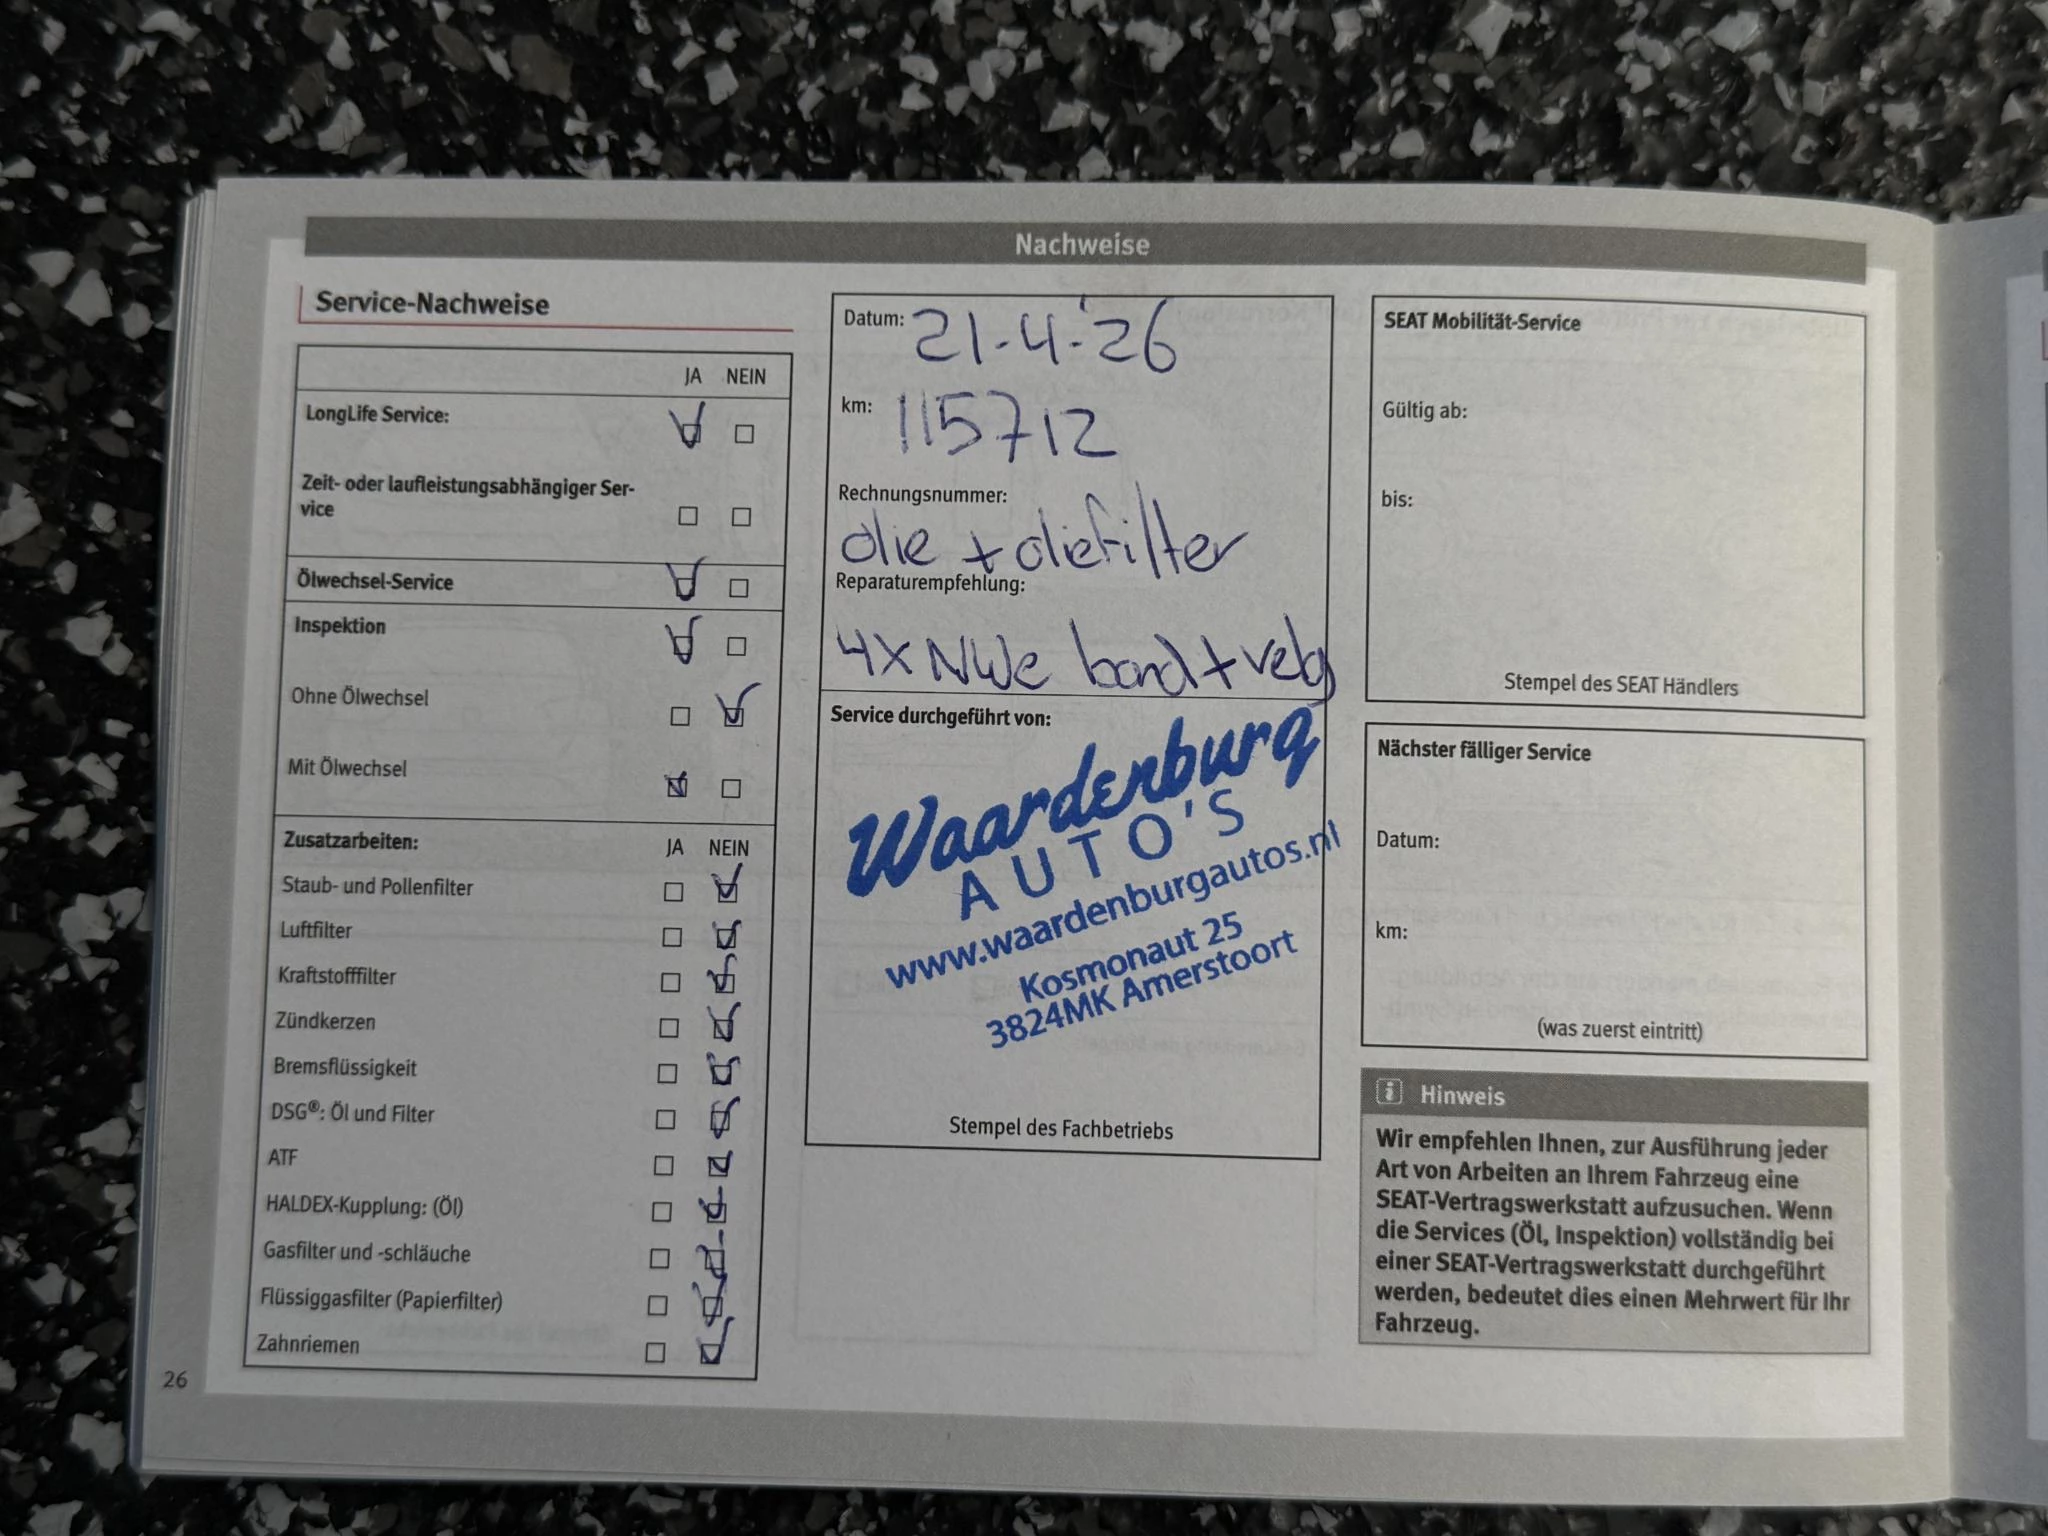 Nachweise
Service-Nachweise
JA NEIN
LongLife Service:
Zeit- oder laufleistungsabhängiger Ser-
vice
Ölwechsel-Service
Inspektion
Ohne Ölwechsel
Mit Ölwechsel
Zusatzarbeiten: JA NEIN
Staub- und Pollenfilter
Luftfilter
Kraftstofffilter
Zündkerzen
Bremsflüssigkeit
DSG®: Öl und Filter
ATF
HALDEX-Kupplung: (Öl)
Gasfilter und -schläuche
Flüssiggasfilter (Papierfilter)
Zahnriemen
26
Datum: 21-4-'26
km: 115712
Rechnungsnummer:
olie + oliefilter
Reparaturempfehlung:
4x NWe band + velg
Service durchgeführt von:
Waardenburg
AUTO'S
www.waardenburgautos.nl
Kosmonaut 25
3824MK Amerstoort
Stempel des Fachbetriebs
SEAT Mobilität-Service
Gültig ab:
bis:
Stempel des SEAT Händlers
Nächster fälliger Service
Datum:
km:
(was zuerst eintritt)
i Hinweis
Wir empfehlen Ihnen, zur Ausführung jeder
Art von Arbeiten an Ihrem Fahrzeug eine
SEAT-Vertragswerkstatt aufzusuchen. Wenn
die Services (Öl, Inspektion) vollständig bei
einer SEAT-Vertragswerkstatt durchgeführt
werden, bedeutet dies einen Mehrwert für Ihr
Fahrzeug.